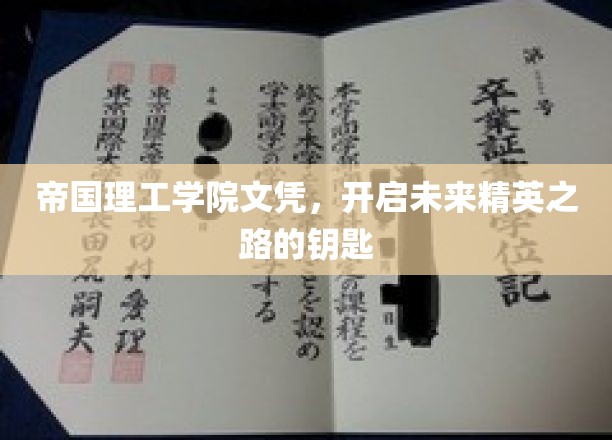 帝国理工学院文凭，开启未来精英之
路的钥匙
第 号
卒業証 学位記
日生
本学商学部 定の課程を
修めて本学 とを認め
学士(商学)の学 与する
平成
東京国際大学商 長田村愛理
東京国際大 長田尻嗣夫